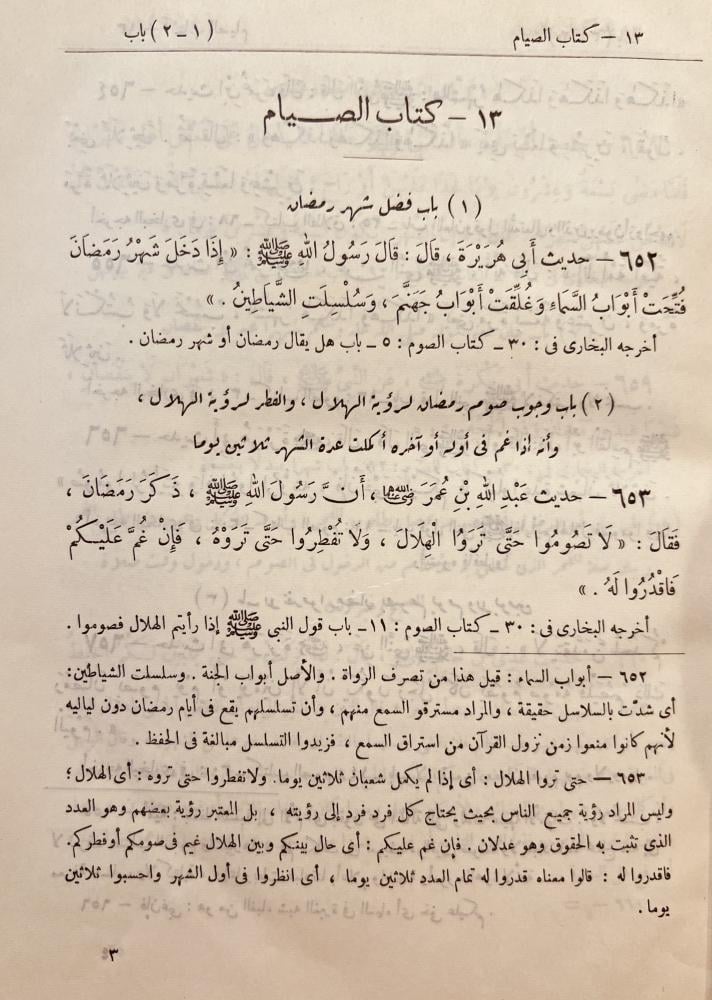 ١٣ – كتاب الصيام (١ – ٢) باب
١٣ – كتاب الصـيـام
(١) باب فضل شهر رمضان
٦٥٢ – حديث أَبِي هُرَيْرَةَ ، قَالَ : قَالَ رَسُولُ اللهِ ﷺ : « إِذَا دَخَلَ شَهْرُ رَمَضَانَ
فُتِّحَتْ أَبْوَابُ السَّمَاءِ وَغُلِّقَتْ أَبْوَابُ جَهَنَّمَ ، وَسُلْسِلَتِ الشَّيَاطِينُ . »
أخرجه البخارى فى : ٣٠ – كتاب الصوم : ٥ – باب هل يقال رمضان أو شهر رمضان .
(٢) باب وجوب صوم رمضان لرؤية الهلال ، والفطر لرؤية الهلال ،
وأنه إذا غم فى أوله أو آخره أكملت عدة الشهر ثلاثين يوما
٦٥٣ – حديث عَبْدِ اللهِ بْنِ عُمَرَ رضي الله عنهما ، أَنَّ رَسُولَ اللهِ ﷺ ، ذَكَرَ رَمَضَانَ ،
فَقَالَ : « لَا تَصُومُوا حَتَّى تَرَوُا الْهِلَالَ ، وَلَا تُفْطِرُوا حَتَّى تَرَوْهُ ، فَإِنْ غُمَّ عَلَيْكُمْ
فَاقْدُرُوا لَهُ . »
أخرجه البخارى فى : ٣٠ – كتاب الصوم : ١١ – باب قول النبى ﷺ إذا رأيتم الهلال فصوموا .
٦٥٢ – أبواب السماء : قيل هذا من تصرف الرواة . والأصل أبواب الجنة . وسلسلت الشياطين :
أى شدّت بالسلاسل حقيقة ، والمراد مسترقو السمع منهم ، وأن تسلسلهم يقع فى أيام رمضان دون لياليه
لأنهم كانوا منعوا زمن نزول القرآن من استراق السمع ، فزيدوا التسلسل مبالغة فى الحفظ .
٦٥٣ – حتى تروا الهلال : أى إذا لم يكمل شعبان ثلاثين يوما . ولا تفطروا حتى تروه : أى الهلال ؛
وليس المراد رؤية جميع الناس بحيث يحتاج كل فرد فرد إلى رؤيته ، بل المعتبر رؤية بعضهم وهو العدد
الذى تثبت به الحقوق وهو عدلان . فإن غم عليكم : أى حال بينكم وبين الهلال غيم فى صومكم أو فطركم .
فاقدروا له : قالوا معناه قدروا له تمام العدد ثلاثين يوما ، أى انظروا فى أول الشهر واحسبوا ثلاثين
يوما .
٣